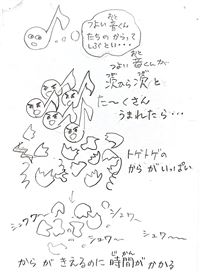 つよい音くん
おと
たちの からって
しぶとい・・・
おと
つよい音くんが
つぎ
次から次と
たーくさん
うまれたら・・・
トゲトゲの
からがいっぱい
シュワワ〜
シュワー
シュワー
シュワ〜
じかん
からがきえるのに時間がかかる